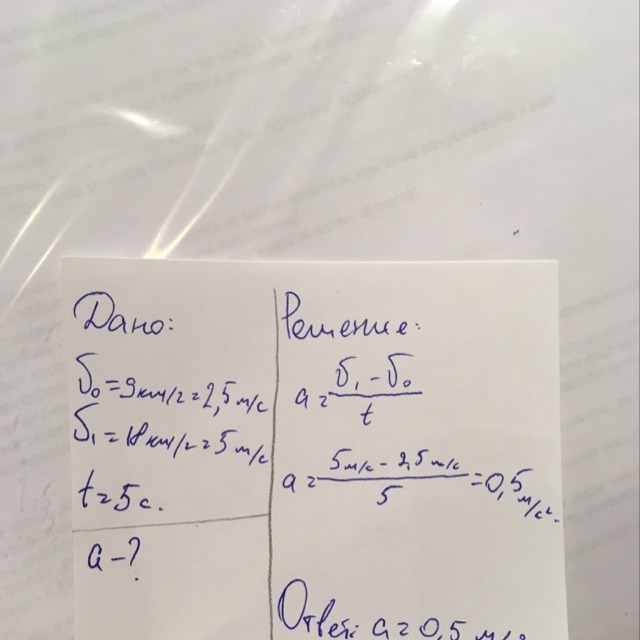 Дано:
υ₀ = 9 км/г = 2,5 м/с
υ₁ = 18 км/г = 5 м/с
t = 5 с.
a – ?
Решение:
a = (υ₁ – υ₀) / t
a = (5 м/с – 2,5 м/с) / 5 = 0,5 м/с².
Ответ: a = 0,5 м/с²